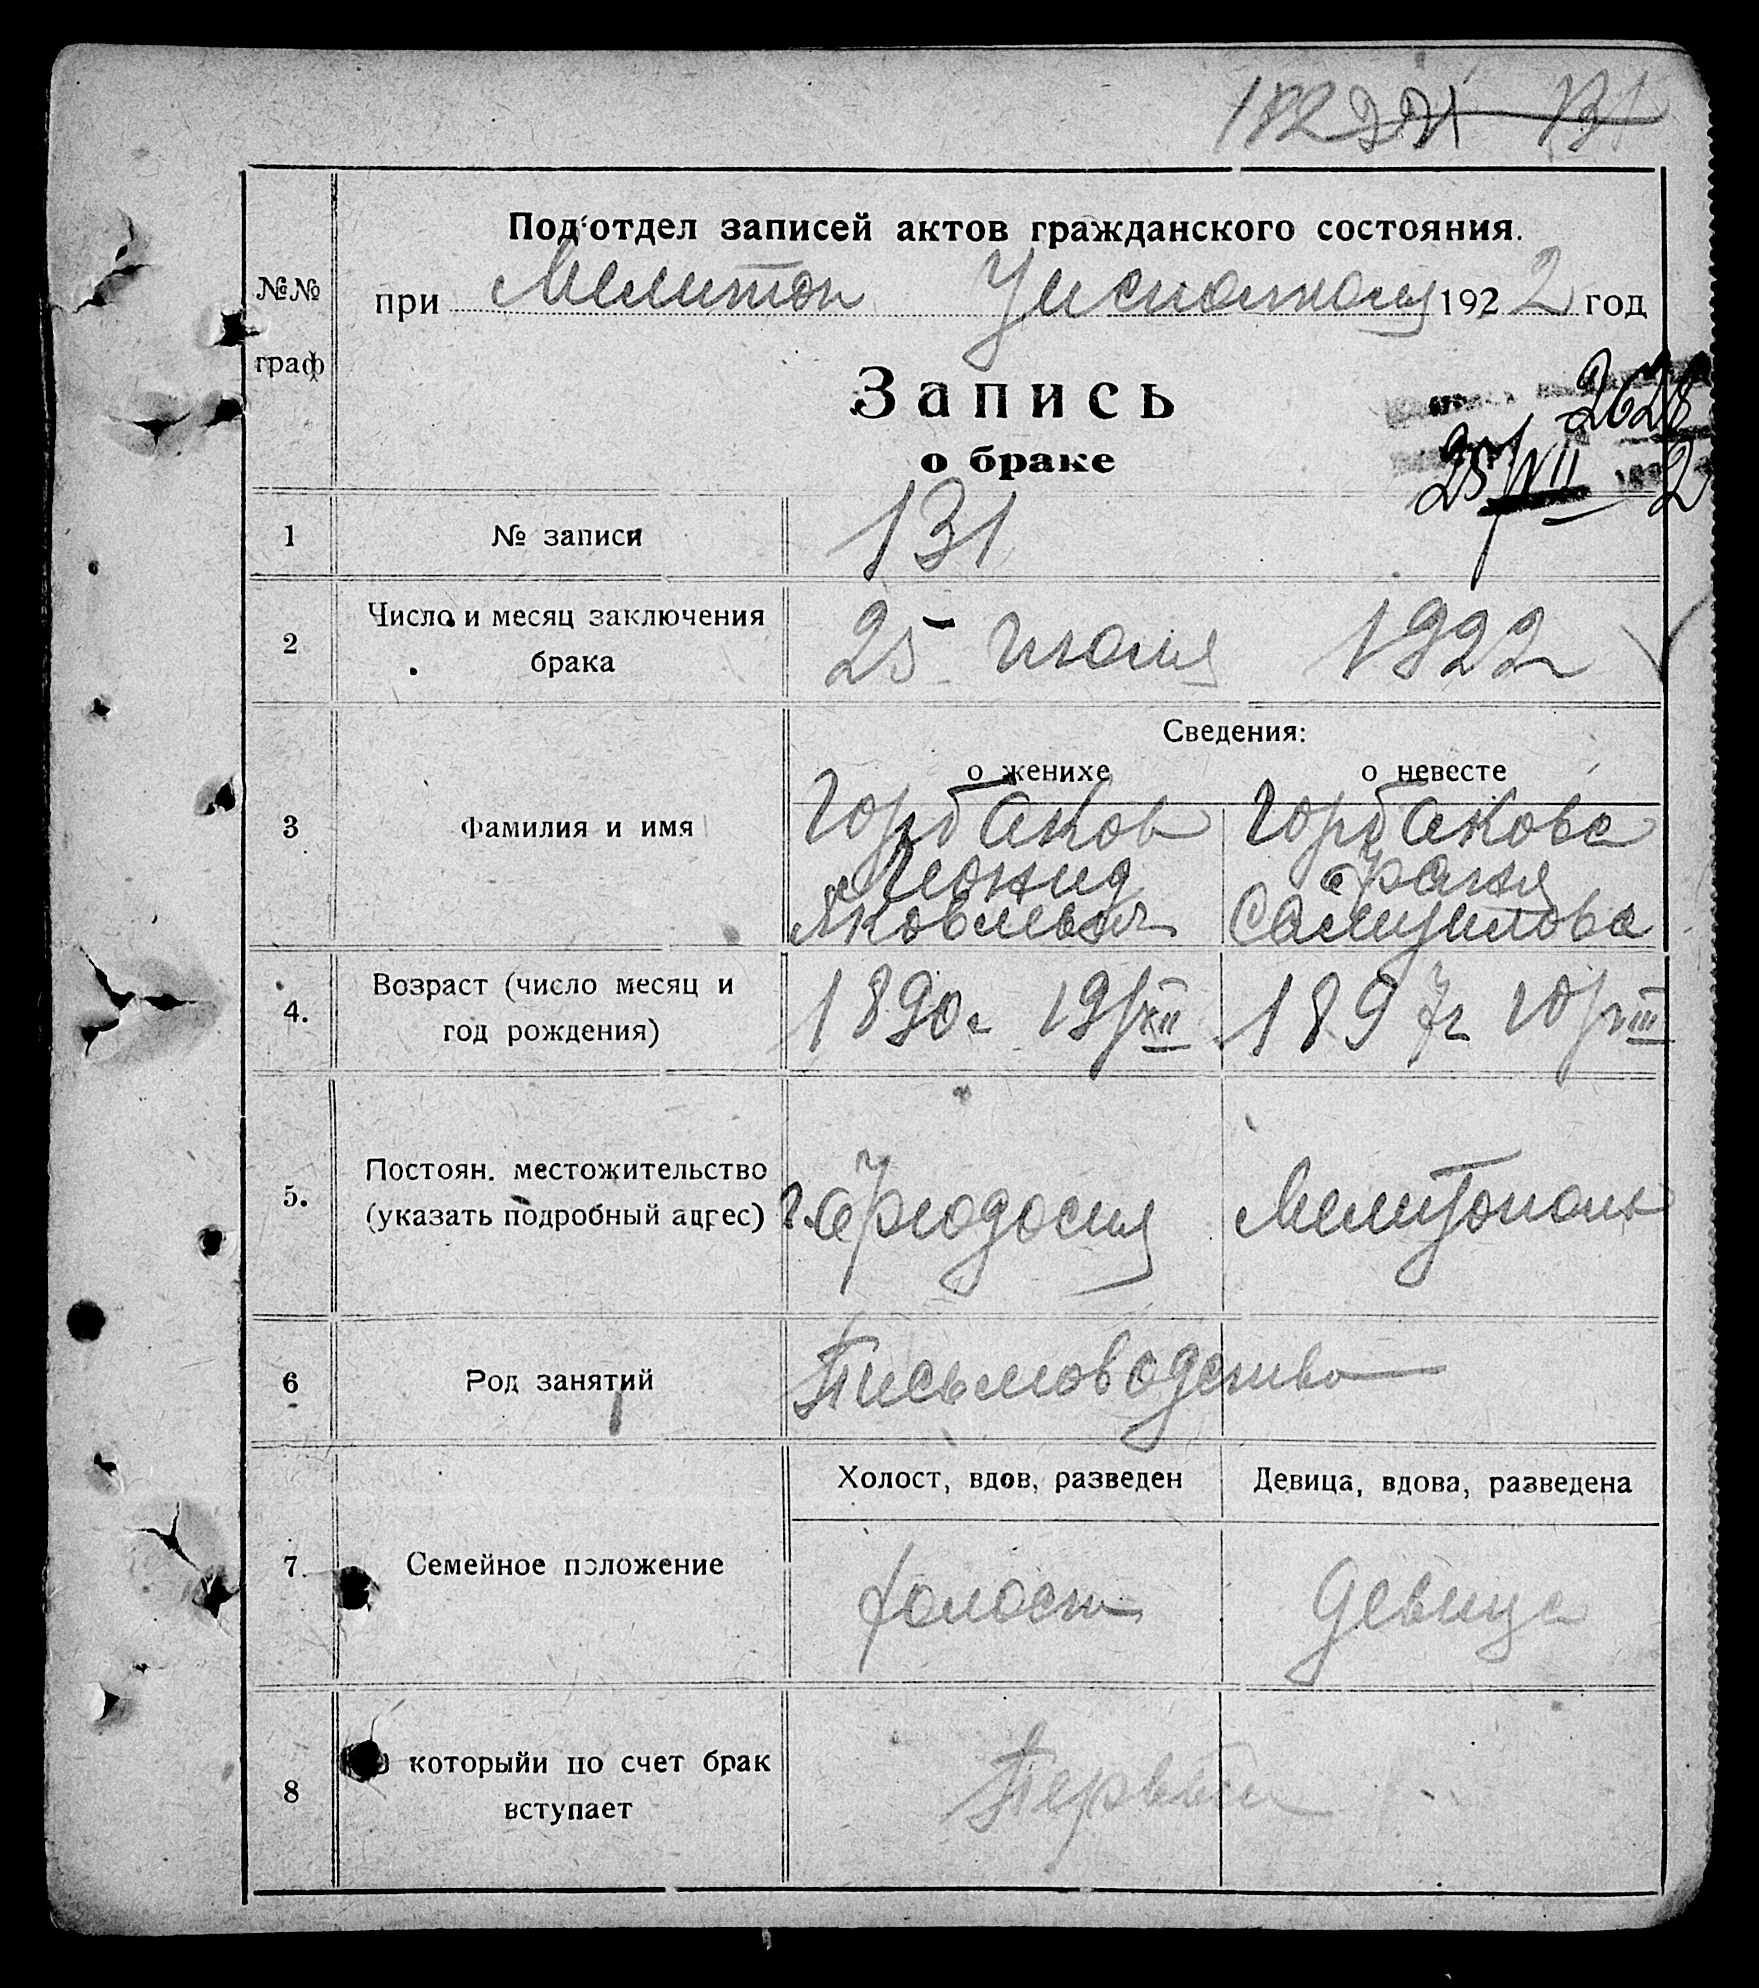 182 221 131
Под'отдел записей актов гражданского состояния.
№№
граф
при Мелитоп Уисполкому 1922 год
Запись
о браке
2628
25/VII 2
1 № записи 131
2 Число и месяц заключения
брака
25 Июля 1922
Сведения:
о женихе о невесте
3 Фамилия и имя
Горбаков Горбакова
Леонид Фаня
Яковлевич Самуилова
4. Возраст (число месяц и
год рождения)
1890г 19/XII 1897г 10/VIII
5. Постоян. местожительство
(указать подробный адрес)
г. Феодосия Мелитополь
6 Род занятий Письмоводство
Холост, вдов, разведен Девица, вдова, разведена
7. Семейное положение холост девица
8 который и по счет брак
вступает
Первый